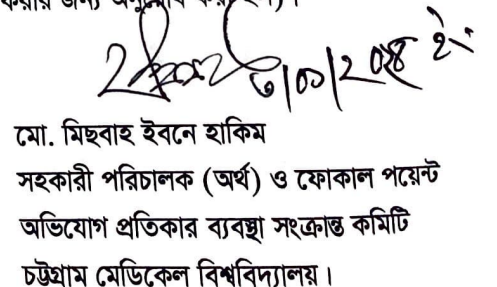 ৩/০১/২০২৪ ইং
মো. মিছবাহ ইবনে হাকিম
সহকারী পরিচালক (অর্থ) ও ফোকাল পয়েন্ট
অভিযোগ প্রতিকার ব্যবস্থা সংক্রান্ত কমিটি
চট্টগ্রাম মেডিকেল বিশ্ববিদ্যালয়।